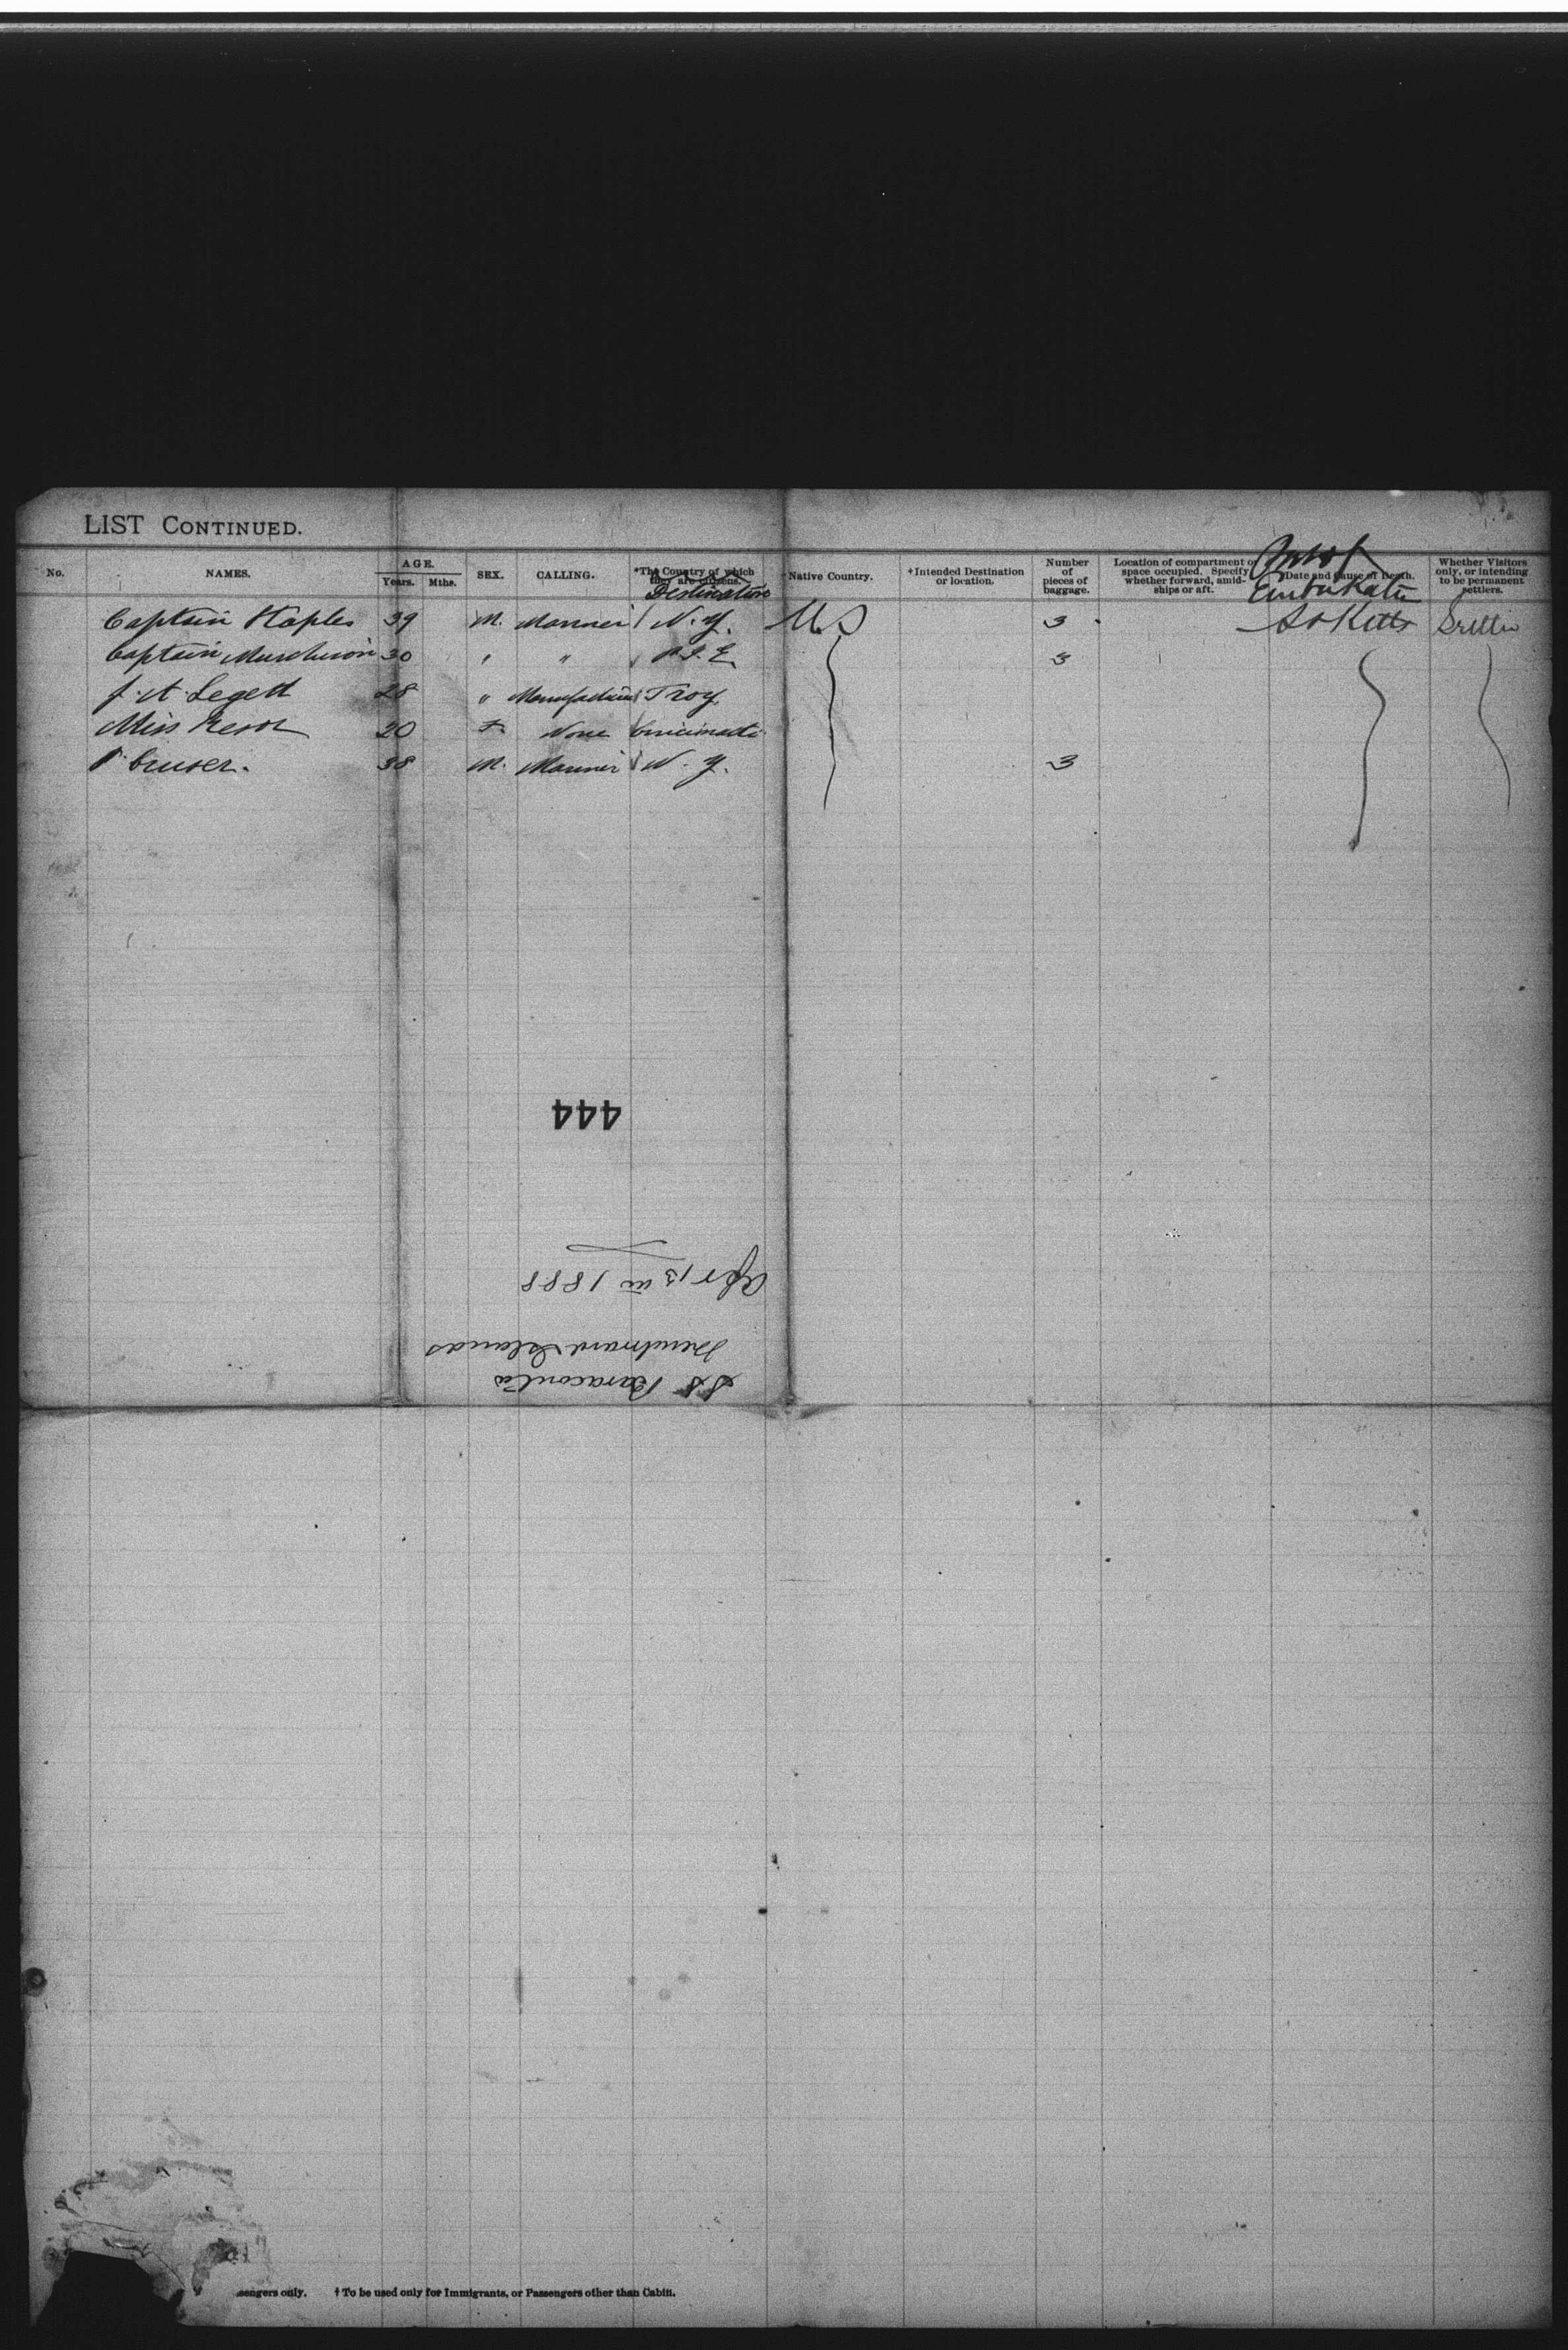 LIST CONTINUED.
No. NAMES. AGE. Years. Mths. SEX. CALLING. *The Country of which they are citizens. Destination Native Country. †Intended Destination or location. Number of pieces of baggage. Location of compartment or space occupied. Specify whether forward, amidships or aft. Port of Embarkatn †Date and Cause of Death. Whether Visitors only, or intending to be permanent settlers.
Captain Staples 39 M. Mariner N.Y. US 3 St Kitts Settler
Captain Murchison 30 " " P.I.E. 3
J. A. Legett 28 " Manufacturer Troy
Miss 20 F. None Cincinnati
P. Cruser. 38 M. Mariner N.Y. 3
444
SS Baracouta
Windward Islands
Apr 13th 1888
sengers only. † To be used only for Immigrants, or Passengers other than Cabin.